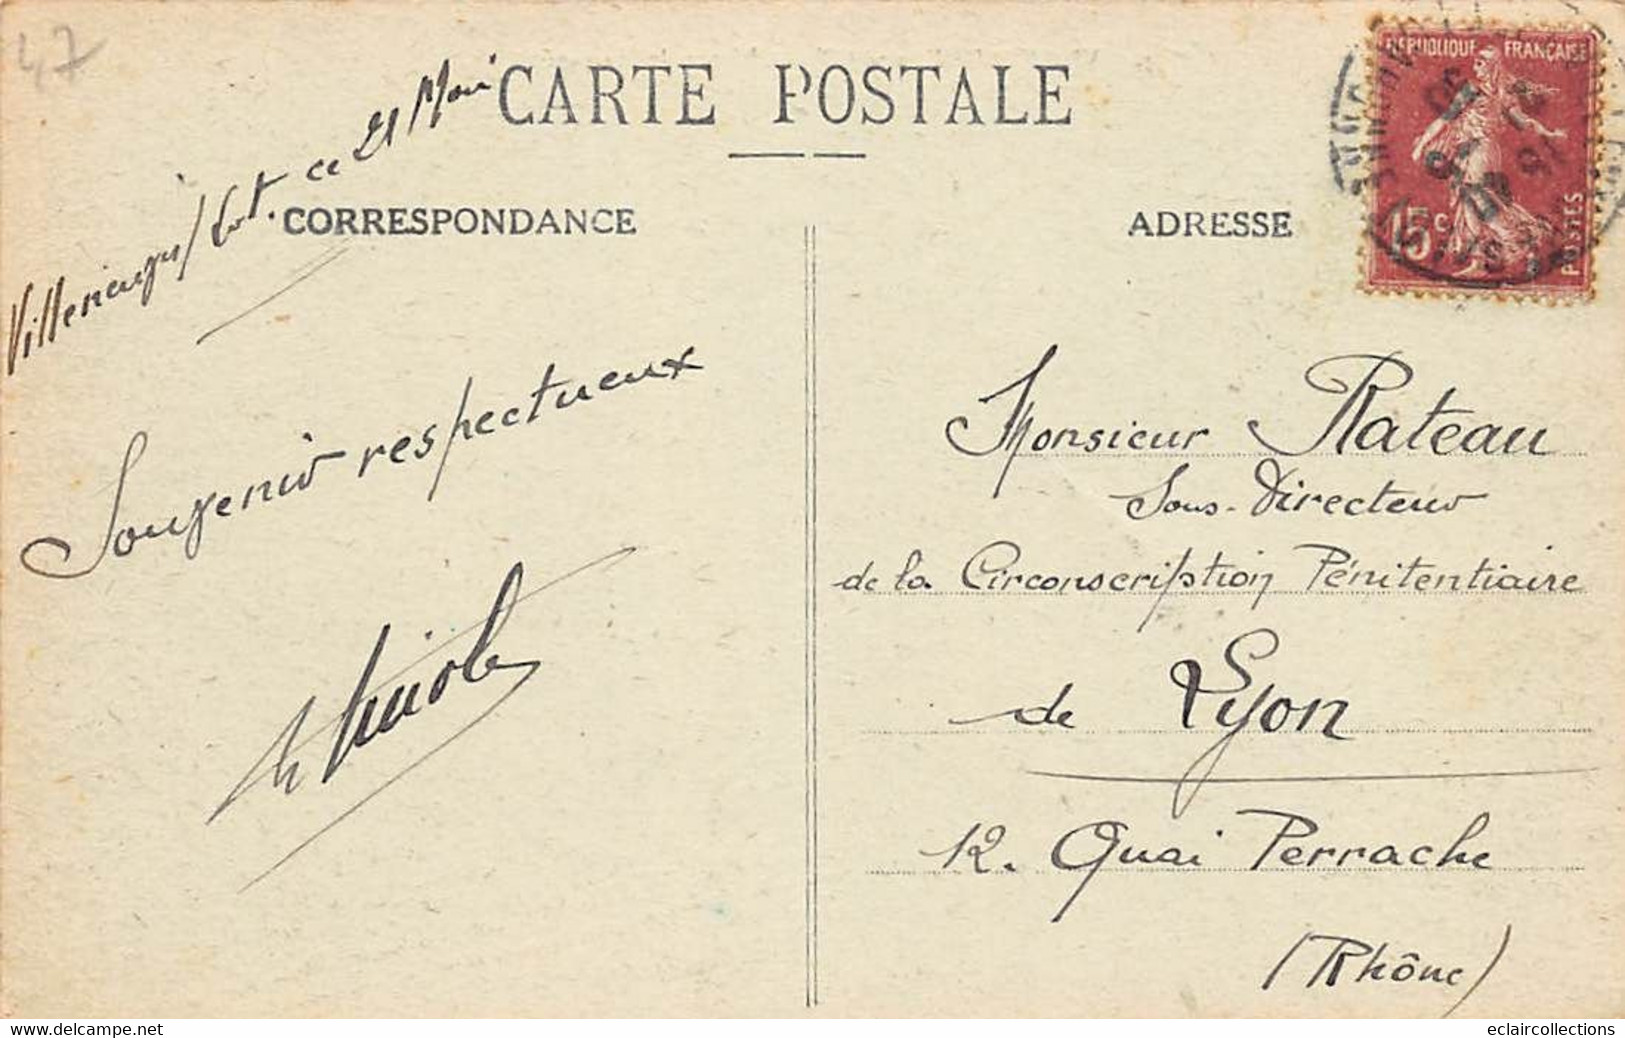 47
CARTE POSTALE
Villeneuve/Lot. ce 21 Mai
CORRESPONDANCE
Souvenir respectueux
ADRESSE
REPUBLIQUE FRANÇAISE
15c
POSTES
Monsieur Rateau
Sous-Directeur
de la Circonscription Pénitentiaire
de Lyon
12. Quai Perrache
(Rhône)
www.delcampe.net
eclaircollections